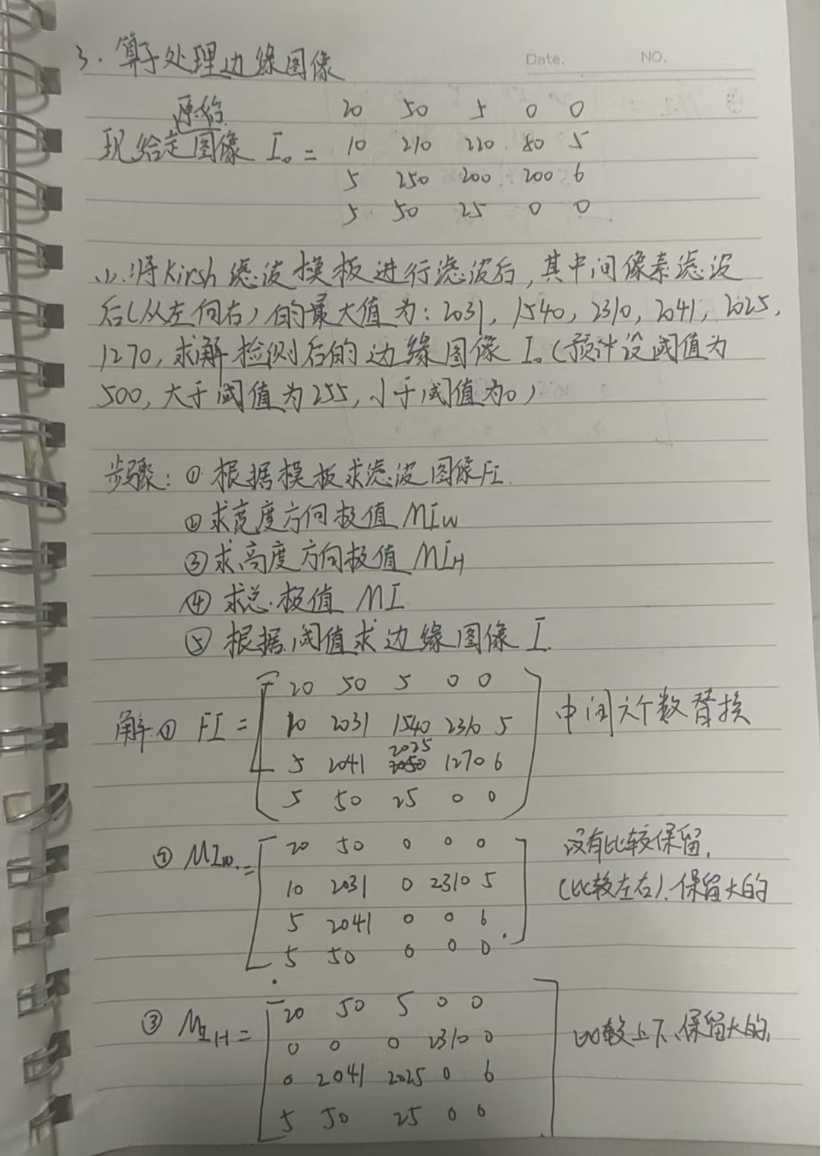 Date. NO.
3. 算子处理边缘图像
原始
20 50 5 0 0
现给定图像 I₀ = 10 210 220 80 5
5 250 200 200 6
5 50 25 0 0
(1). 将Kirsh滤波模板进行滤波后, 其中间像素滤波
后(从左向右)的最大值为: 2031, 1540, 2310, 2041, 2025,
1270, 求解检测后的边缘图像 I。(预计设阈值为
500, 大于阈值为255, 小于阈值为0)
步骤: ① 根据模板求滤波图像FI.
② 求宽度方向极值 MIW
③ 求高度方向极值 MIH
④ 求总极值 MI
⑤ 根据阈值求边缘图像 I.
20 50 5 0 0
解① FI = 10 2031 1540 2310 5 中间六个数替换
2025
5 2041 1270 6
5 50 25 0 0
② MIw. = 20 50 0 0 0 没有比较保留,
10 2031 0 2310 5 (比较左右). 保留大的
5 2041 0 0 6
5 50 0 0 0
20 50 5 0 0
③ MIH = 0 0 0 2310 0 比较上下、保留大的,
0 2041 2025 0 6
5 50 25 0 0